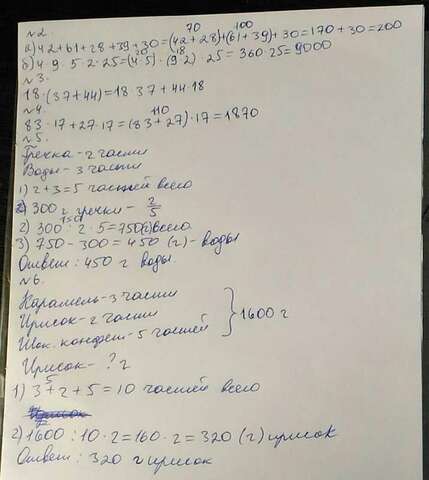 №2.
70 100
а) 42+61+28+39+30=(42+28)+(61+39)+30=170+30=200
20 18
б) 4·9·5·2·25=(4·5)·(9·2)·25=360·25=9000
№3.
18·(37+44)=18·37+44·18
№4.
110
83·17+27·17=(83+27)·17=1870
№5.
Гречка-2 части
Воды-3 части
1) 2+3=5 частей всего
2) 300 г гречки - 2/5
150
2) 300:2·5=750(г) всего
3) 750-300=450 (г)-воды
Ответ: 450 г воды.
№6.
Карамель-3 части
Ирисок-2 части
Шок. конфет-5 частей
1600 г
Ирисок-?г
5
1) 3+2+5=10 частей всего
2) 1600:10·2=160·2=320 (г) ирисок
Ответ: 320 г ирисок